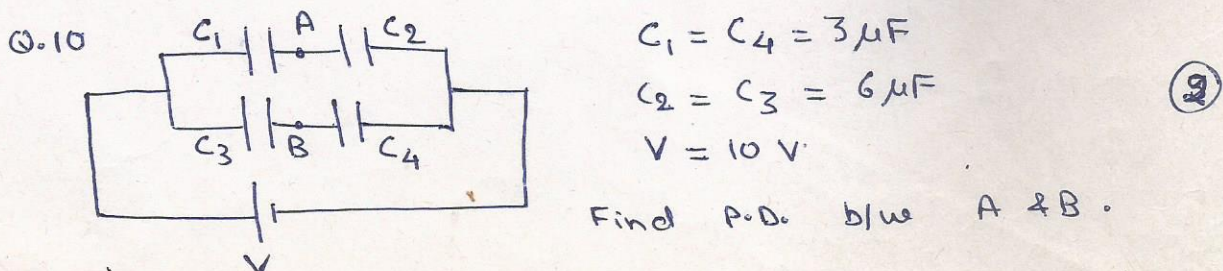 Q.10
C₁ A C₂
C₃ B C₄
V
C₁ = C₄ = 3 μF
C₂ = C₃ = 6 μF
V = 10 V.
Find P.D. b/w A & B.
2